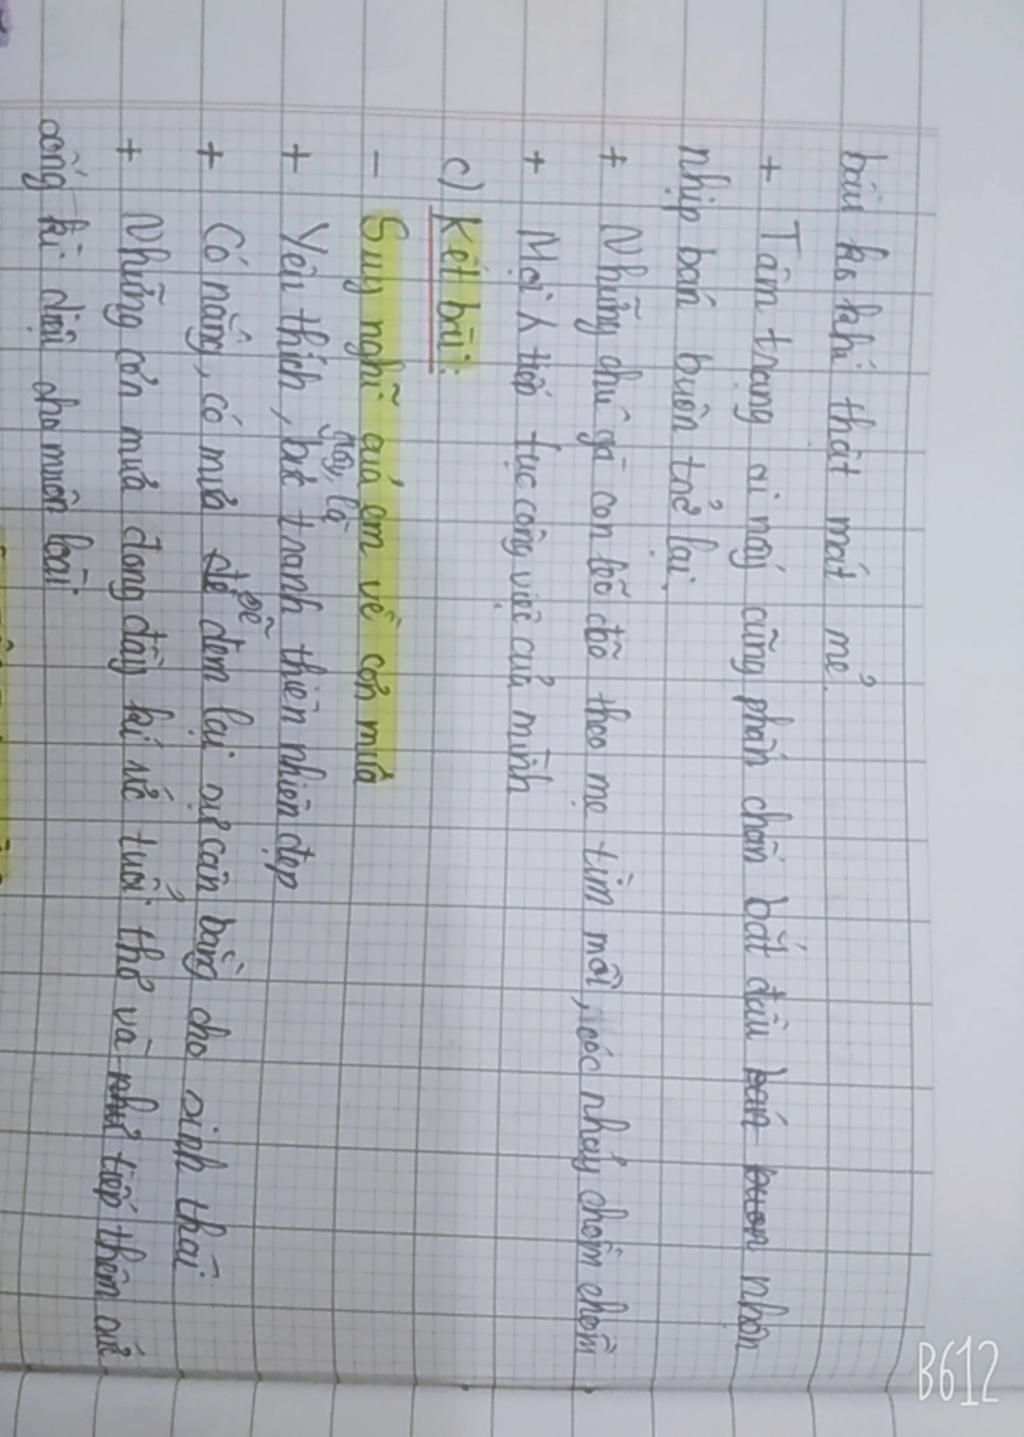 bầu ko khí thật mát mẻ.
+ Tâm trạng ai nấy cũng phấn chấn bắt đầu bán buôn nhộn
nhịp bán buôn trở lại.
+ Những chú gà con lẽo đẽo theo mẹ tìm mồi, cóc nhảy chồm chồm
+ Mọi λ tiếp tục công việc của mình
c) Kết bài:
- Suy nghĩ của em về cơn mưa
+ Yêu thích, bức tranh thiên nhiên đẹp
này, là
+ Có nắng, có mưa để sẽ đem lại sự cân bằng cho sinh thái
+ Những cơn mưa đong đầy kí ức tuổi thơ và như tiếp thêm sức
sống kì diệu cho muôn loài
B612